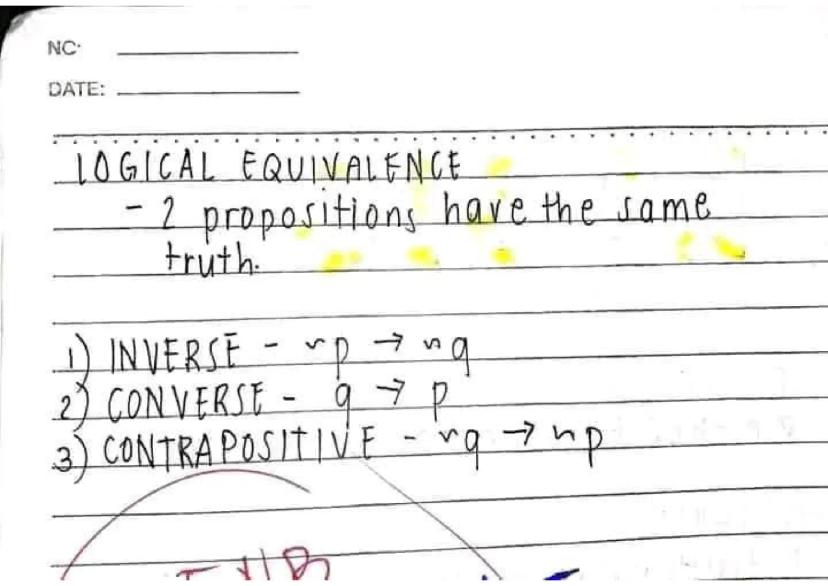 NO:
DATE:
LOGICAL EQUIVALENCE
- 2 propositions have the same
truth.
1) INVERSE - ~p → ~q
2) CONVERSE - q → p
3) CONTRAPOSITIVE - ~q → ~p